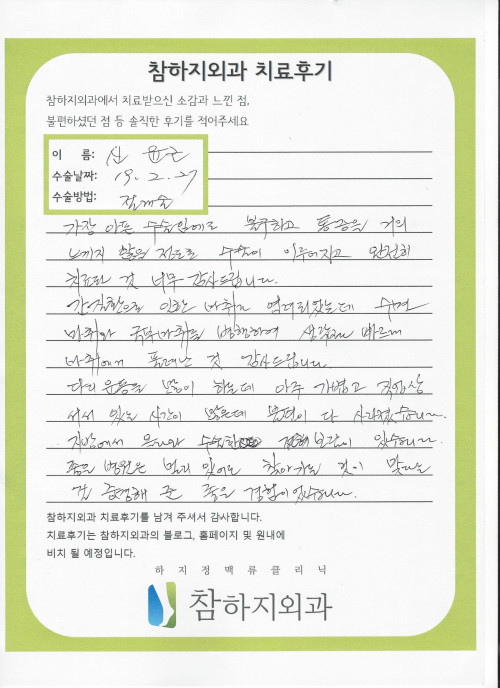 참하지외과 치료후기
참하지외과에서 치료받으신 소감과 느낀 점,
불편하셨던 점 등 솔직한 후기를 적어주세요
이 름: 신
수술날짜: 19. 2. 27
수술방법: 절제술
가장 아픈 수술임에도 불구하고 통증을 거의
느끼지 않을 정도로 수술이 이루어지고 완전히
치료된 것 너무 감사드립니다.
간질환으로 인한 마취가 염려되었는데 수면
마취와 국부마취를 병행하여 생각보다 빠르게
마취에서 풀려난 것 감사드립니다.
다리 운동을 많이 하는데 아주 가볍고 직업상
서서 있는 시간이 많은데 부종이 다 사라졌습니다.
지방에서 올라와 수술한 보람이 있습니다.
좋은 병원은 멀리 있어도 찾아가는 것이 맞다는
것 증명해 준 좋은 경험이었습니다.
참하지외과 치료후기를 남겨 주셔서 감사합니다.
치료후기는 참하지외과의 블로그, 홈페이지 및 원내에
비치 될 예정입니다.
하지정맥류클리닉
참하지외과